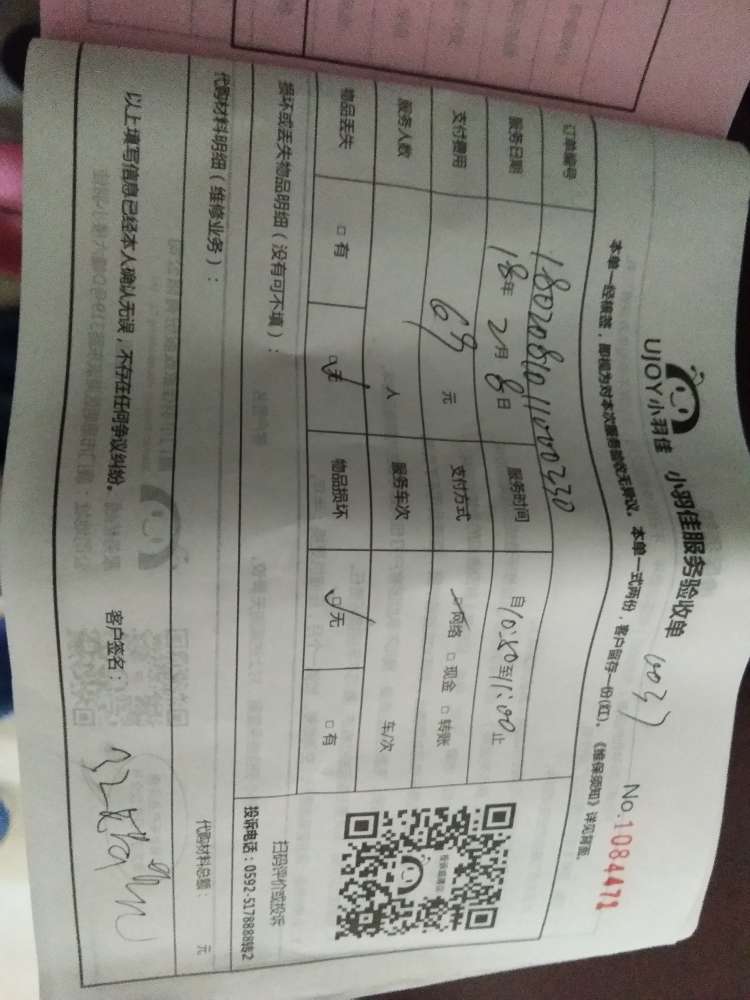 UJOY小羽佳 小羽佳服务验收单
No.1084471
本单一经核签，即视为对本次服务验收无异议。本单一式两份，客户留存一份(红)。《维保须知》详见背面。
订单编号
服务日期 18年 2月 8日 服务时间 自10:30至11:00止
支付费用 元 支付方式 网络 □ 现金 □ 转账
服务人数 人 服务车次 车/次
物品丢失 □ 有 □ 无 物品损坏 □ 无 □ 有
损坏或丢失物品明细（没有可不填）：
扫码评价或投诉
投诉电话：0592-5178888转2
代购材料明细（维修业务）： 代购材料总额： 元
以上填写信息已经本人确认无误，不存在任何争议纠纷。 客户签名：